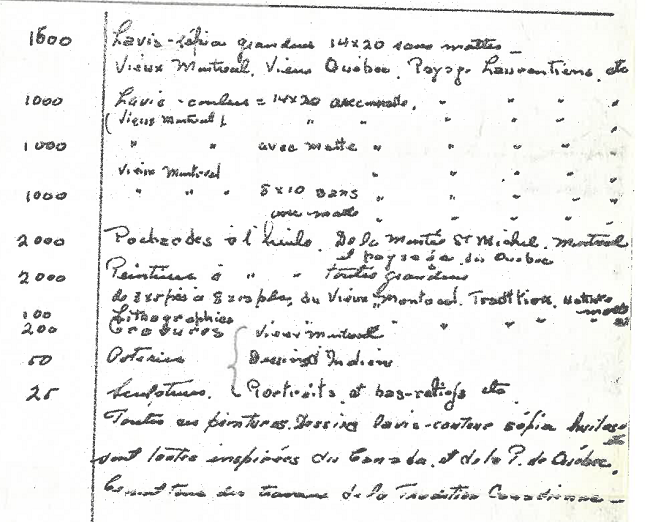 1500 Lavis-sépia grandeur 14x20 sans mattes –
Vieux Montreal, Vieux Québec, Paysage Laurentiens, etc
1000 Lavis-couleur = 14x20 avec matte, " " " "
(Vieux Montreal) " " " " " "
1000 " " avec matte " " " " "
Vieux Montreal
1000 " " " 8x10 sans " " " "
avec matte " " " "
2000 Pochades à l'huile. De la Montée St Michel. Montreal
et paysage du Québec
2000 Peintures à " " toutes grandeurs
de pieds à pieds, du Vieux Montreal. Tradition. natures
mortes
100 Lithographies " " " "
200 Gravures { Vieux Montreal
50 Poteries Dessins Indiens
25 Sculptures. Portraits et bas-reliefs etc
Toutes ces peintures. Dessins lavis-couleur sépia huiles
sont toutes inspirées du Canada. et de la P. de Québec.
Ce sont tous des travaux de la Tradition Canadienne –